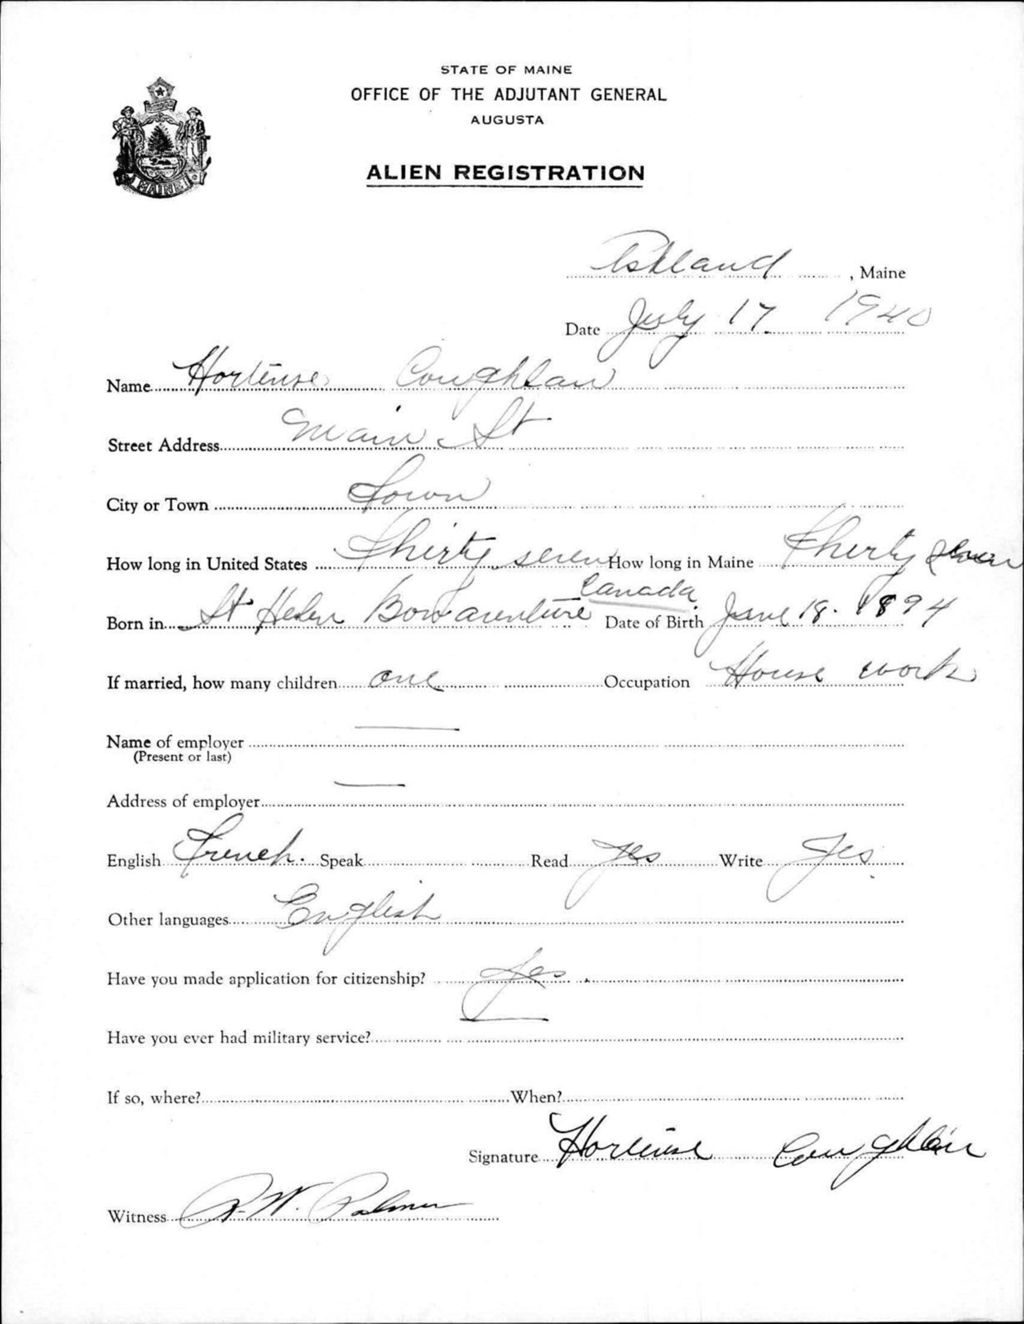 STATE OF MAINE
OFFICE OF THE ADJUTANT GENERAL
AUGUSTA
ALIEN REGISTRATION
MAINE
Ashland, Maine
Date July 17 1940
Name Hortense Coughlan
Street Address Main St
City or Town Town
How long in United States Thirty seven How long in Maine Thirty seven
Born in St Helen Bonaventure Canada Date of Birth June 18. 1894
If married, how many children one Occupation House work
Name of employer —
(Present or last)
Address of employer —
English French. Speak Read Yes Write Yes
Other languages English
Have you made application for citizenship? Yes
Have you ever had military service? —
If so, where? When?
Signature Hortense Coughlan
Witness R. W. Palmer